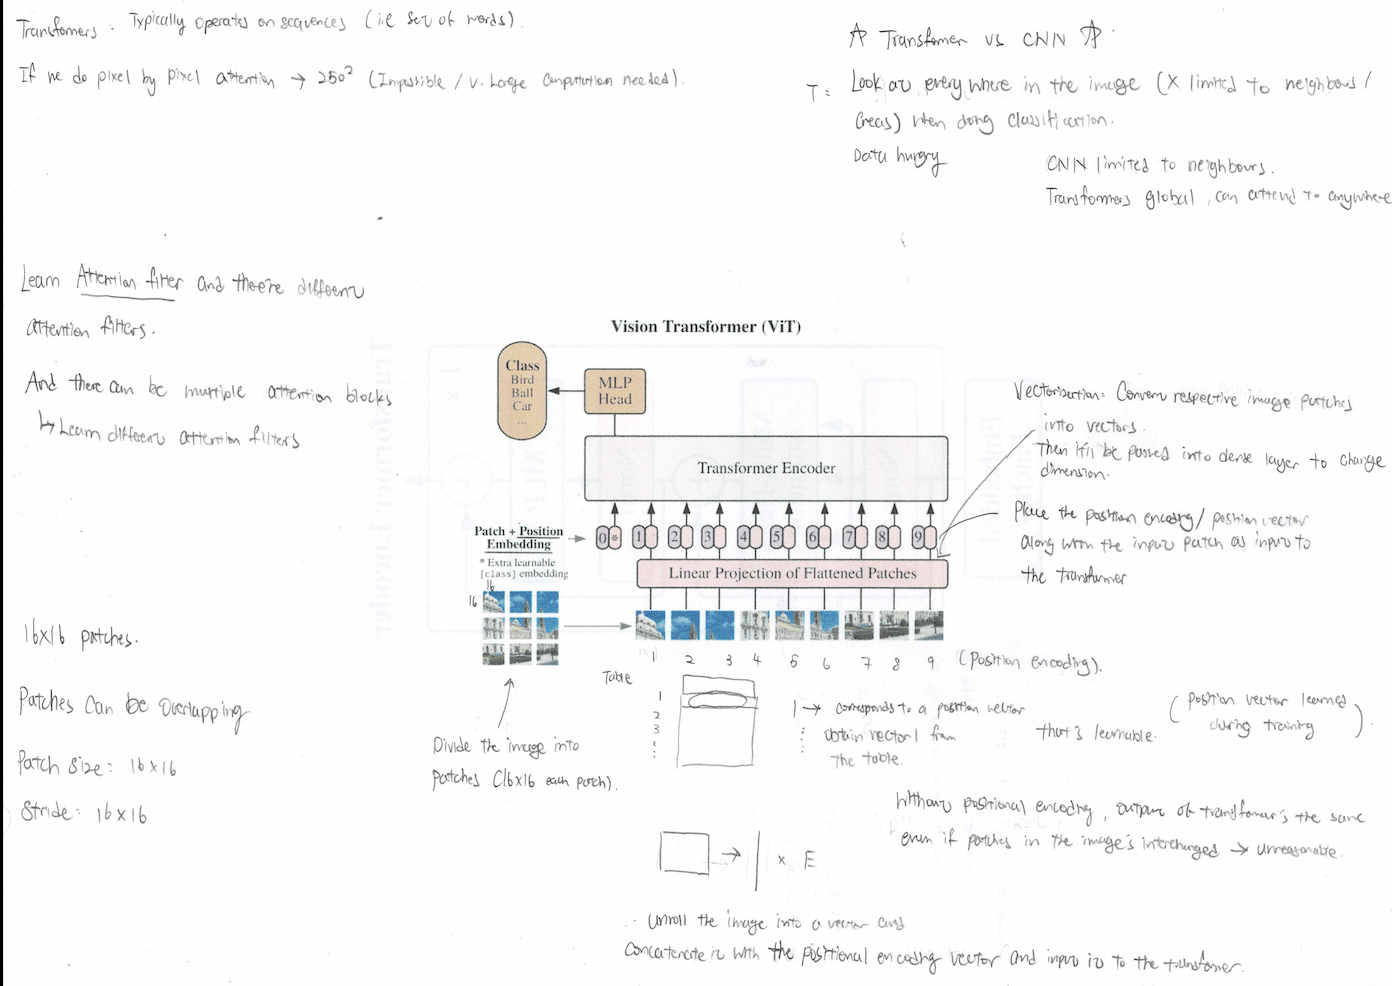 Transfomers : Typically operates on sequences (i.e set of words).
If we do pixel by pixel attention → 250² (Impossible / v. Large Computation needed).
Transfomer vs CNN
T = Look at every where in the image (X limited to neighbours /
areas) when doing classification.
Data hungry
CNN limited to neighbours.
Transformers global, can attend to anywhere
Learn Attention filter and there're different
attention filters.
And there can be multiple attention blocks
↳ Learn different attention filters
16x16 patches.
Patches Can be Overlapping
Patch Size: 16x16
Stride: 16x16
Vision Transformer (ViT)
Class
Bird
Ball
Car
...
MLP
Head
Transformer Encoder
Patch + Position
Embedding
* Extra learnable
[class] embedding
0 * 1 2 3 4 5 6 7 8 9
Linear Projection of Flattened Patches
16
16
1 2 3 4 5 6 7 8 9 (Position encoding).
Vectorisation: Convert respective image patches
into vectors.
Then it'll be passed into dense layer to change
dimension.
Place the position encoding / position vector
along with the input patch as input to
the transformer
Divide the image into
patches (16x16 each patch).
Table
1
2
3
1 → corresponds to a position vector
obtain vector 1 from
the table.
that's learnable.
(position vector learned
during training).
Without positional encoding, output of transfomer's the same
even if patches in the image's interchanged → unreasonable.
→ x E
Unroll the image into a vector and
Concatenate it with the positional encoding vector and input it to the transfomer.